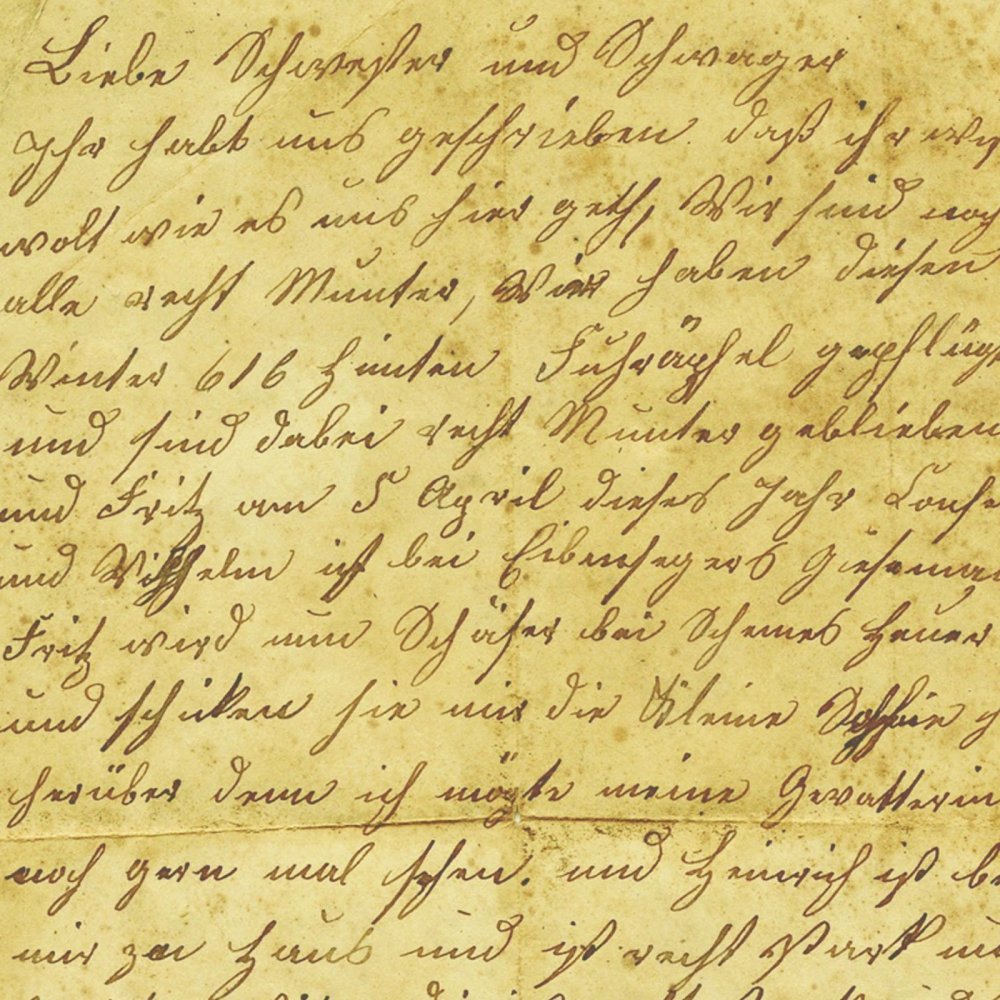 Liebe Schwester und Schwager
Ihr habt uns geschrieben daß ihr
wolt wie es uns hier geth, Wir sind noch
alle recht Munter, Wir haben diesen
Winter 616 Himten Fuhräpfel gepflügt
und sind dabei recht Munter geblieben
und Fritz am 5 April dieses Jahr Conf
und Wilhelm ist bei
Fritz wird nun Schäfer bei Heuer
und schicken sie mir die Kleine Sophie
herüber denn ich mögte meine Gevatterin
noch gern mal sehen. und Heinrich ist be
mir zu Haus und ist recht Stark